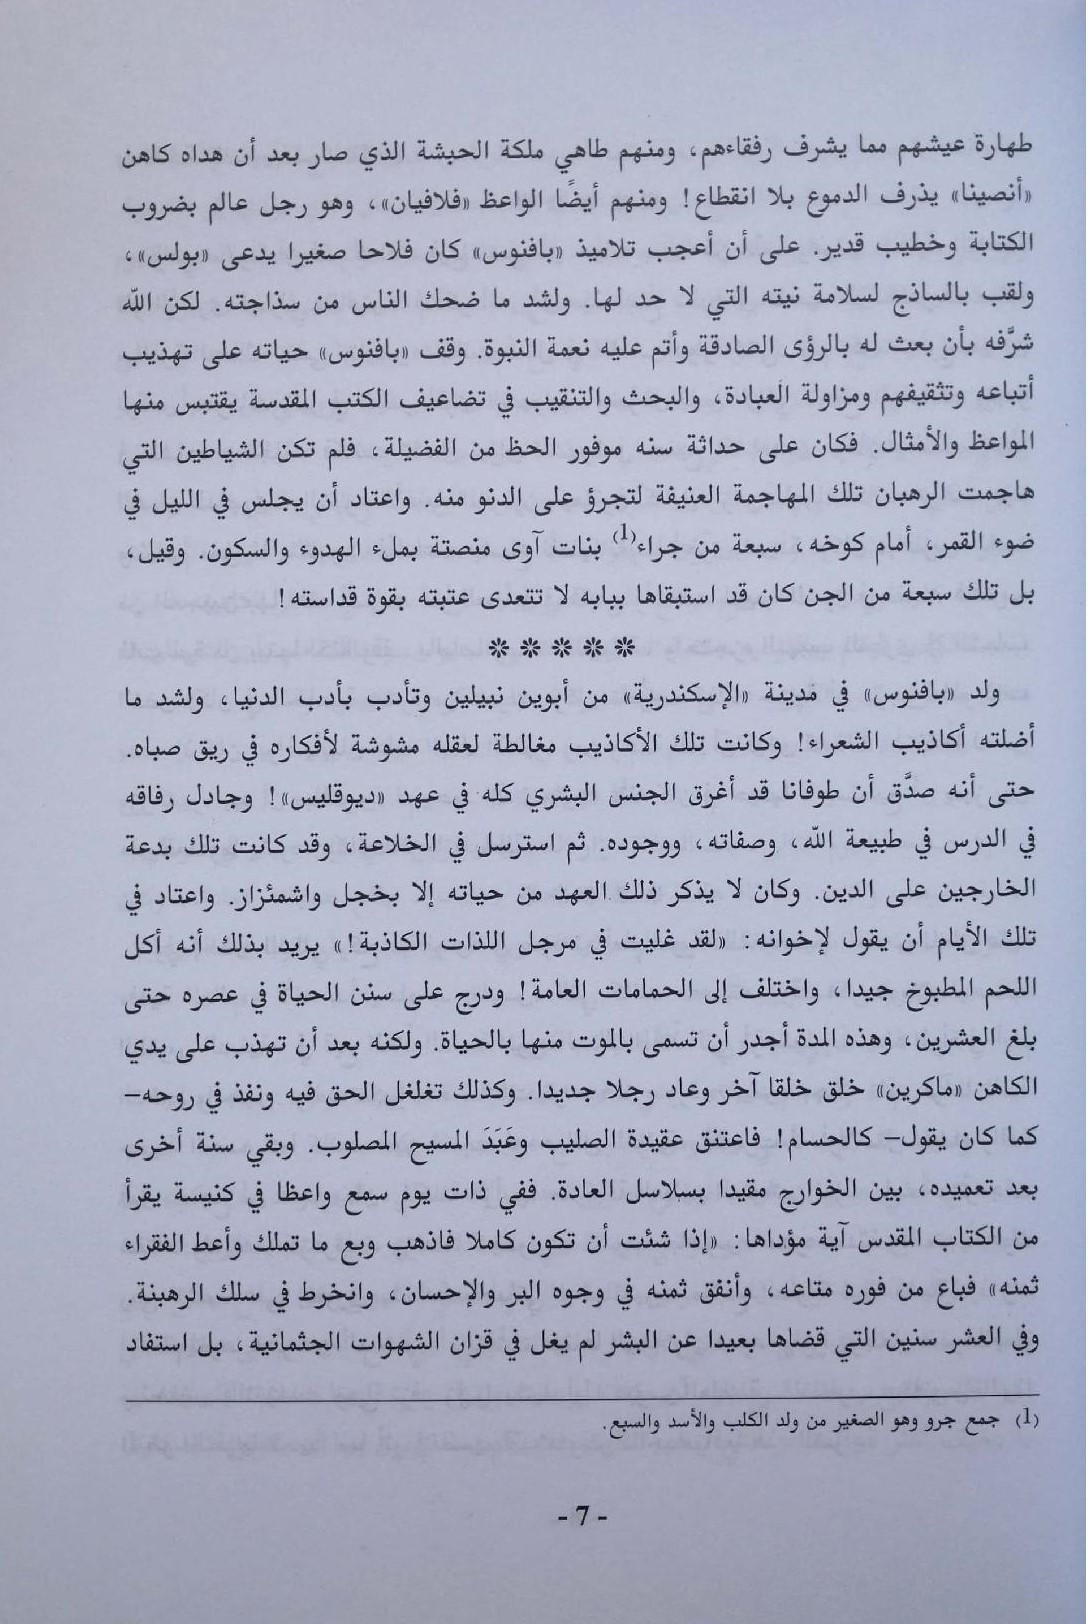 طهارة عيشهم مما يشرف رفقاءهم، ومنهم طاهي ملكة الحبشة الذي صار بعد أن هداه كاهن
«أنصينا» يذرف الدموع بلا انقطاع! ومنهم أيضًا الواعظ «فلافيان»، وهو رجل عالم بضروب
الكتابة وخطيب قدير. على أن أعجب تلاميذ «بافنوس» كان فلاحا صغيرا يدعى «بولس»،
ولقب بالساذج لسلامة نيته التي لا حد لها. ولشد ما ضحك الناس من سذاجته. لكن الله
شرَّفه بأن بعث له بالرؤى الصادقة وأتم عليه نعمة النبوة. وقف «بافنوس» حياته على تهذيب
أتباعه وتثقيفهم ومزاولة العبادة، والبحث والتنقيب في تضاعيف الكتب المقدسة يقتبس منها
المواعظ والأمثال. فكان على حداثة سنه موفور الحظ من الفضيلة، فلم تكن الشياطين التي
هاجمت الرهبان تلك المهاجمة العنيفة لتجرؤ على الدنو منه. واعتاد أن يجلس في الليل في
ضوء القمر، أمام كوخه، سبعة من جراء(1) بنات آوى منصتة بملء الهدوء والسكون. وقيل،
بل تلك سبعة من الجن كان قد استبقاها ببابه لا تتعدى عتبته بقوة قداسته!
❊ ❊ ❊ ❊ ❊
ولد «بافنوس» في مدينة «الإسكندرية» من أبوين نبيلين وتأدب بأدب الدنيا، ولشد ما
أضلته أكاذيب الشعراء! وكانت تلك الأكاذيب مغالطة لعقله مشوشة لأفكاره في ريق صباه.
حتى أنه صدَّق أن طوفانا قد أغرق الجنس البشري كله في عهد «ديوقليس»! وجادل رفاقه
في الدرس في طبيعة الله، وصفاته، ووجوده. ثم استرسل في الخلاعة، وقد كانت تلك بدعة
الخارجين على الدين. وكان لا يذكر ذلك العهد من حياته إلا بخجل واشمئزاز. واعتاد في
تلك الأيام أن يقول لإخوانه: «لقد غليت في مرجل اللذات الكاذبة!» يريد بذلك أنه أكل
اللحم المطبوخ جيدا، واختلف إلى الحمامات العامة! ودرج على سنن الحياة في عصره حتى
بلغ العشرين، وهذه المدة أجدر أن تسمى بالموت منها بالحياة. ولكنه بعد أن تهذب على يدي
الكاهن «ماكرين» خلق خلقا آخر وعاد رجلا جديدا. وكذلك تغلغل الحق فيه ونفذ في روحه–
كما كان يقول– كالحسام! فاعتنق عقيدة الصليب وعَبَدَ المسيح المصلوب. وبقي سنة أخرى
بعد تعميده، بين الخوارج مقيدا بسلاسل العادة. ففي ذات يوم سمع واعظا في كنيسة يقرأ
من الكتاب المقدس آية مؤداها: «إذا شئت أن تكون كاملا فاذهب وبع ما تملك وأعط الفقراء
ثمنه» فباع من فوره متاعه، وأنفق ثمنه في وجوه البر والإحسان، وانخرط في سلك الرهبنة.
وفي العشر سنين التي قضاها بعيدا عن البشر لم يغل في قزان الشهوات الجثمانية، بل استفاد
(1) جمع جرو وهو الصغير من ولد الكلب والأسد والسبع.
- 7 -